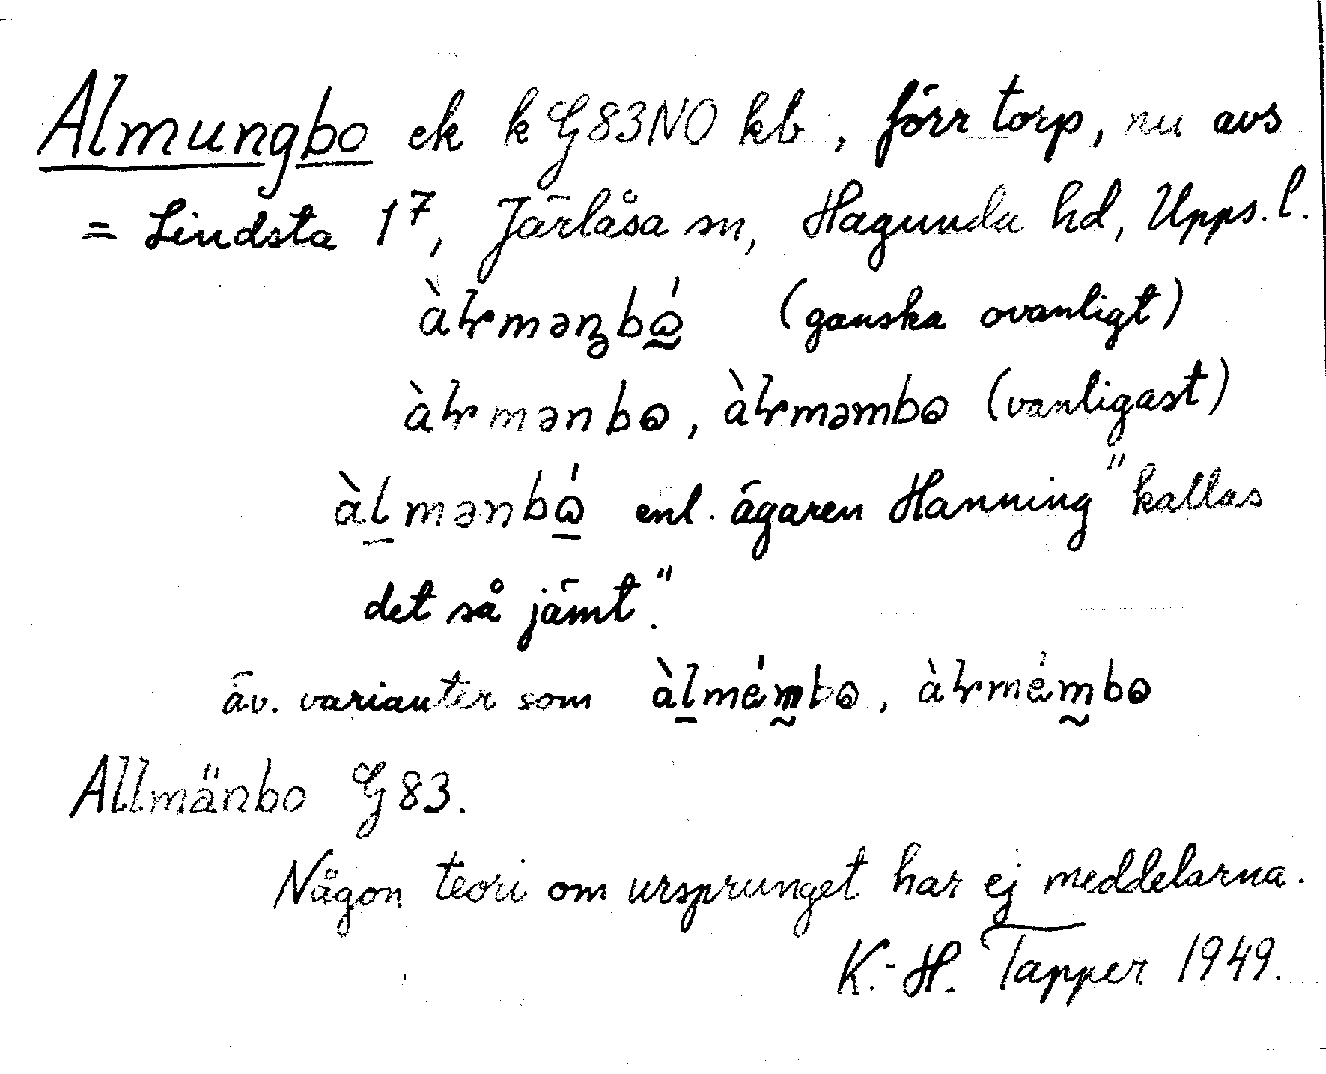 Almungbo ek k G83NO kb, förr torp, nu avs
= Lindsta 1⁷, Järlåsa sn, Hagunda hd, Upps. l.
(ganska ovanligt)
(vanligast)
enl. ägaren Hanning "kallas
det så jämt."
äv. varianter som
Allmänbo G83.
Någon teori om ursprunget har ej meddelarna.
K.-H. Tapper 1949.